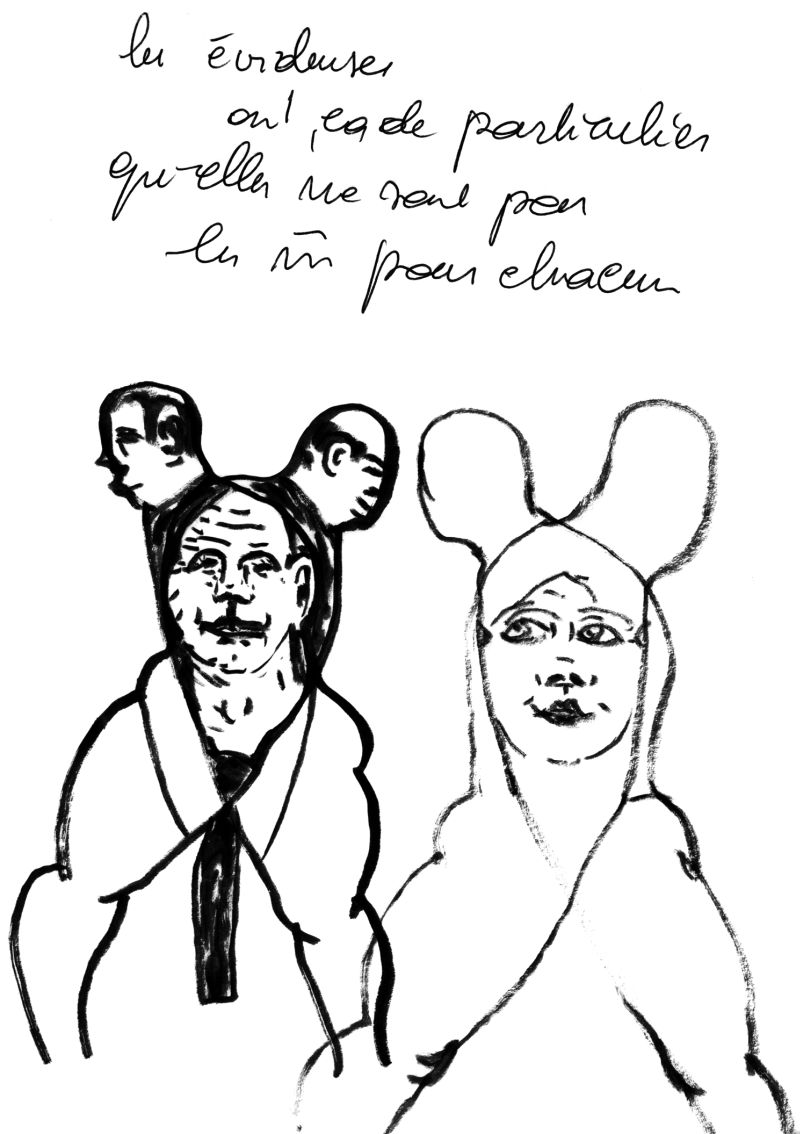 les évidences
ont ça de particulier
qu'elles ne sont pas
les m̂ pour chacun